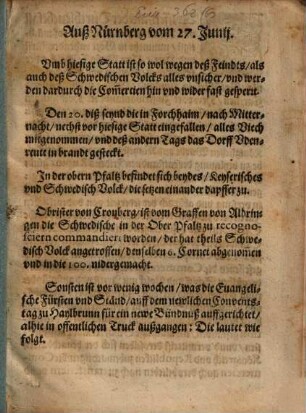 Auß Nürnberg vom 27. Junij.
Vmb hiesige Statt ist so wol wegen deß Feindts/ als
auch deß Schwedischen Volcks alles vnsicher/ vnd wer-
den dardurch die Com̃ercien hin vnd wider fast gesperrt.
Den 20. diß seynd die in Forchhaim/ nach Mitter-
nacht/ nechst vor hiesige Statt eingefallen/ alles Viech
mitgenommen/ vnd deß andern Tags das Dorff Vden-
reutt in brandt gesteckt.
In der obern Pfaltz befindet sich beydes/ Keyserisches
vnd Schwedisch Volck/ die setzen einander dapffer zu.
Obrister von Cronberg/ ist vom Graffen von Aldrin-
gen die Schwedische in der Ober Pfaltz zu recogno-
sciern commandiert worden/ der hat theils Schwe-
disch Volck angetroffen/ denselben 6. Cornet abgenom̃en
vnd in die 100. nidergemacht.
Sonsten ist vor wenig wochen/ was die Euangeli-
sche Fürsten vnd Ständ/ auff dem newlichen Conuents-
tag zu Haylbrunn für ein newe Bündnuß auffgerichtet/
alhie in offentlichen Truck außgangen: Die lautet wie
folgt.